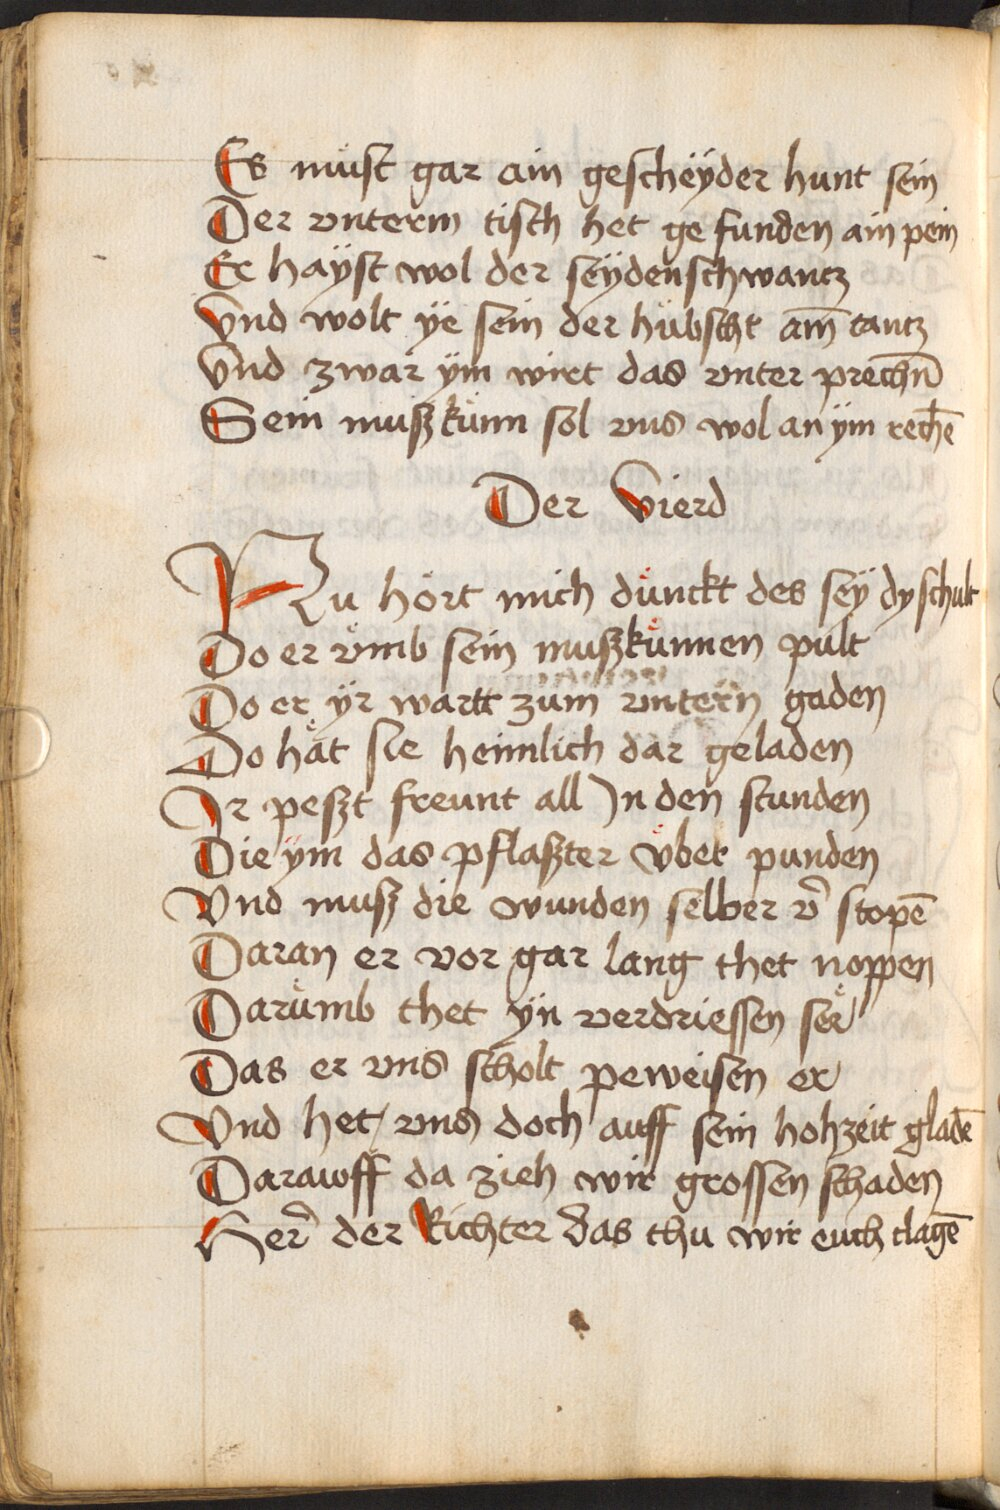 Es müst gar ain gescheÿder hunt sein
Der vnterm tisch het ge funden ain pein
Er haÿst wol der seÿdenschwantz
Vnd wolt ÿe sein der hübscht am̄ tantz
Vnd zwar ÿm wirt das vnter prechn̄
Sein muszkünn sol vns wol an ÿm rechē
Der Vierd
Nu hört mich dünckt des seÿ dy schult
Do er vmb sein muszkünnen pult
Do er ÿr wartt zum vntern gaden
Do hät sie heimlich dar geladen
Ir peszt freunt all Jn den stunden
Die ÿm das pflaszter vber punden
Vnd musz die wunden selber v̄ stopē
Daran er vor gar lang thet noppen
Darumb thet ÿn verdriessen ser
Das er vns scholt peweisen er
Vnd het vns doch auff sein hohzeit gladē
Darawff da zieh wir grossen schaden
Her̄ der Richter das thu wir euch clagē